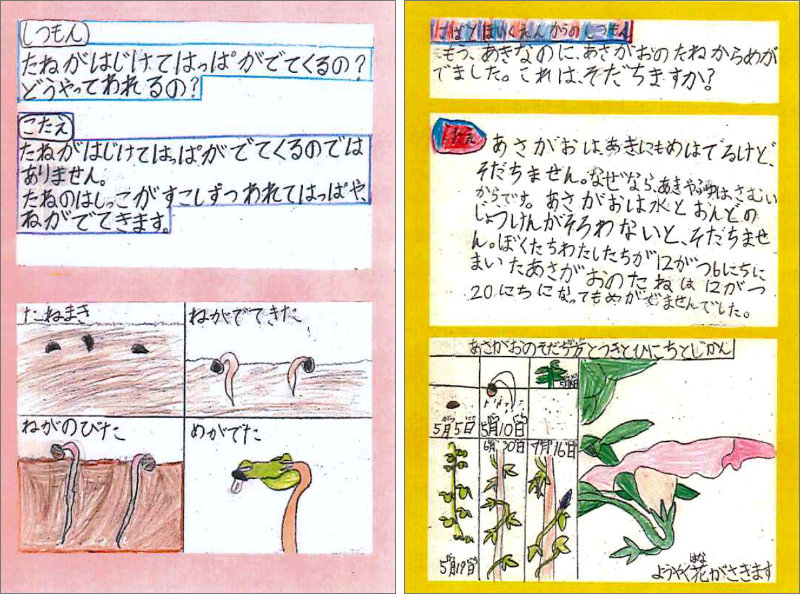 しつもん
たねがはじけてはっぱがでてくるの?
どうやってわれるの?
こたえ
たねがはじけてはっぱがでてくるのでは
ありません。
たねのはしっこがすこしずつわれてはっぱや、
ねがでてきます。
たねまき
ねがでてきた
ねがのびた
めがでた
ほいくえんからのしつもん
もう、あきなのに、あさがおのたねからめが
でました。これは、そだちますか?
こたえ
あさがおは、あきにもめはでるけど、
そだちません。なぜなら、あきやふゆは、さむい
からです。あさがおは水とおんどの
じょうけんがそろわないと、そだちませ
ん。ぼくたちわたしたちが12がつ6にちに
まいたあさがおのたねは12がつ
20にちになってもめがでませんでした。
あさがおのそだち方とつきとひにちとじかん
5月5日
5月10日
6月30日
7月16日
5月19日
ようやく花がさきます
はな